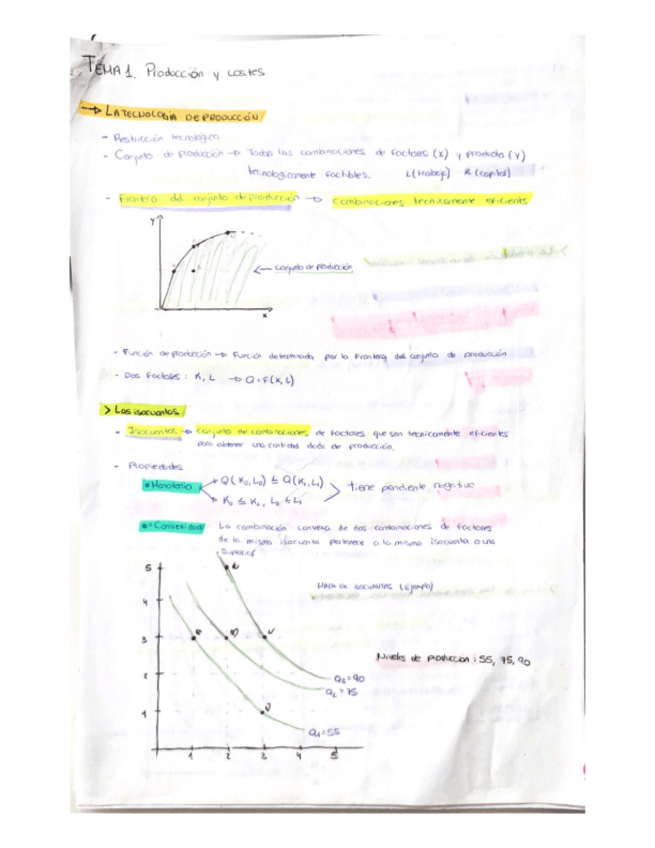 TEMA 1. Producción y costes
→ LA TECNOLOGÍA DE PRODUCCIÓN
- Restricción tecnológica
- Conjunto de producción → Todas las combinaciones de factores (X) y producto (Y)
tecnológicamente factibles. L (trabajo) K (capital)
- Frontera del conjunto de producción → Combinaciones técnicamente eficients
Y
← Conjunto de producción
x
- Función de producción → Función determinada por la frontera del conjunto de producción
- Dos factores: K, L → Q = F(K, L)
> Las isocuantas
- Isocuantas → Conjunto de combinaciones de factores que son técnicamente eficientes
para obtener una cantidad dada de producción.
- Propiedades
* Monotonía
Q(K0, L0) ≤ Q(K1, L1)
K0 ≤ K1, L0 ≤ L1
tiene pendiente negativa
* Convexidad
La combinación convexa de dos combinaciones de factores
de la misma isocuanta pertenece a la misma isocuanta o una
superior
MAPA DE ISOCUANTAS (Ejemplo)
Niveles de producción: 55, 75, 90
5
4
3
2
1
Q3=90
Q2=75
Q1=55
1 2 3 4 5